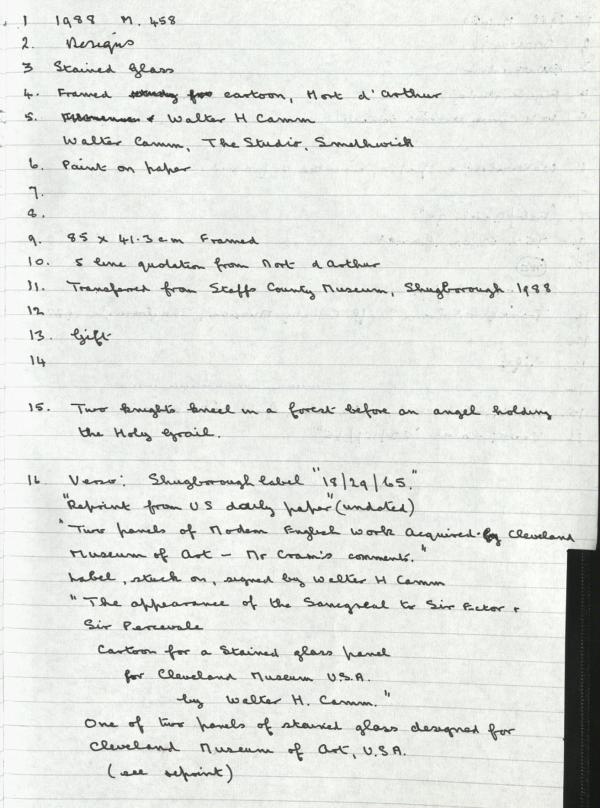 1 1988 M. 458
2. Designs
3 Stained Glass
4. Framed study for cartoon, Mort d'Arthur
5. & Walter H Camm
Walter Camm, The Studio, Smethwick
6. Paint on paper
7.
8.
9. 85 x 41.3cm Framed
10. 5 line quotation from Mort d Arthur
11. Transferred from Staffs County Museum, Shugborough 1988
12
13. Gift
14
15. Two knights kneel in a forest before an angel holding
the Holy Grail.
16 Verso: Shugborough label "18/29/65."
"Reprint from US daily paper" (undated)
"Two panels of Modern English Work Acquired by Cleveland
Museum of Art – Mr Cram's comments."
Label, stuck on, signed by Walter H Camm
"The appearance of the Sancgreal to Sir Ector +
Sir Percevale
Cartoon for a Stained glass panel
for Cleveland Museum U.S.A.
by Walter H. Camm."
One of two panels of stained glass designed for
Cleveland Museum of Art, U.S.A.
(see reprint)